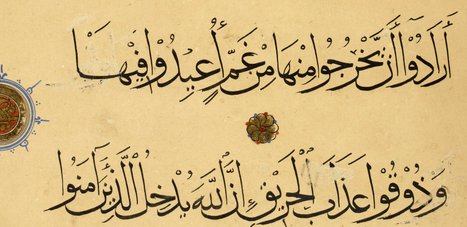 أَرَادُوا أَن يَخْرُجُوا مِنْهَا مِنْ غَمٍّ أُعِيدُوا فِيهَا
وَذُوقُوا عَذَابَ الْحَرِيقِ إِنَّ اللَّهَ يُدْخِلُ الَّذِينَ آمَنُوا